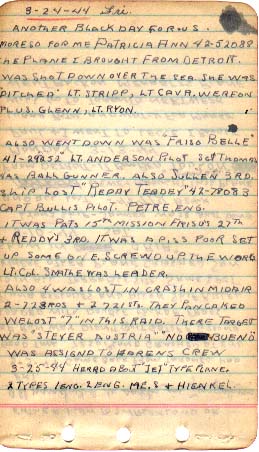 3-24-44 Fri.
ANOTHER BLACK DAY FOR US.
MORESO FOR ME PATRICIA ANN 42-52088
THE PLANE I BROUGHT FROM DETROIT.
WAS SHOT DOWN OVER THE SEA. SHE WAS
"DITCHED" LT. STRIPP, LT CAVA, WEREON
PLUS. GLENN, LT. RYON.
ALSO WENT DOWN WAS "FRISO BELLE"
41-29252 LT. ANDERSON PILOT SGT THOMAS
WAS BALL GUNNER. ALSO SULLEN 3RD.
SHIP LOST "REDDY TEADEY" 42-78083
CAPT BULLIS PILOT. PETRE, ENG.
IT WAS PATS 15TH MISSION FRISOS 27TH
+ REDDYS 3RD. IT WAS A PISS POOR SET
UP SOME ONE SCREWD UP THE WORG
LT. COL. WAS LEADER.
ALSO 4 WAS LOST IN CRASH IN MIDAIR
2-723RDS + 2 721STS. THEY PANCAKED
WE LOST "7" IN THIS RAID. THERE TARGET
WAS "STEYER AUSTRIA" "NO BUENO
WAS ASSIGND TO CREW
3-25-44 HEARD ABOUT "JET" TYPE PLANE.
2 TYPES 1 ENG. 2 ENG. ME. & HIENKEL.